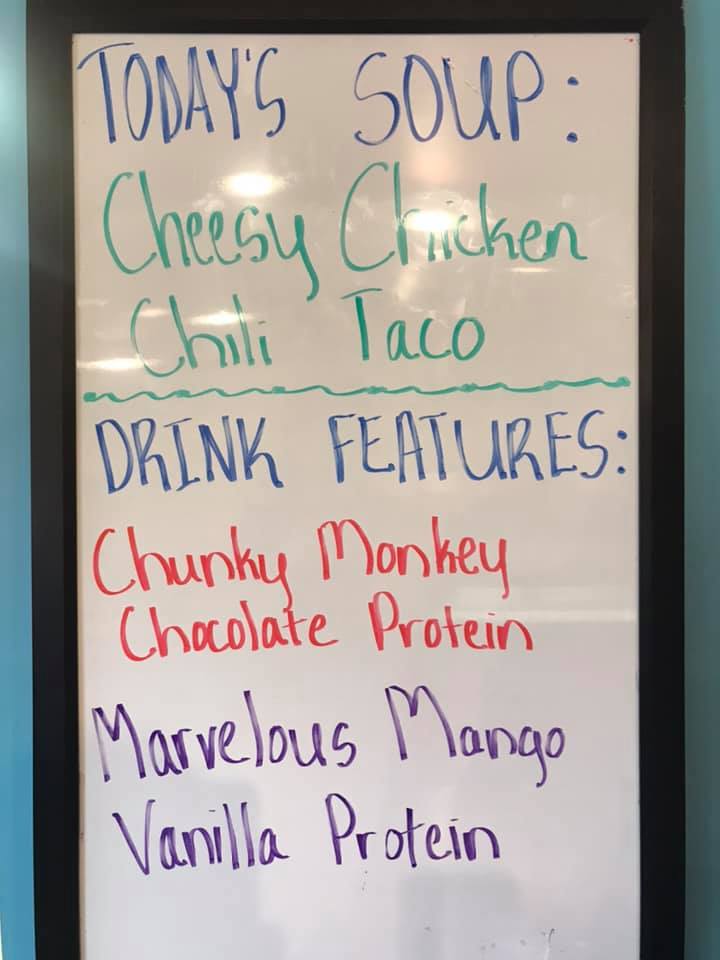 TODAY'S SOUP:
Cheesy Chicken
Chili Taco
DRINK FEATURES:
Chunky Monkey
Chocolate Protein
Marvelous Mango
Vanilla Protein